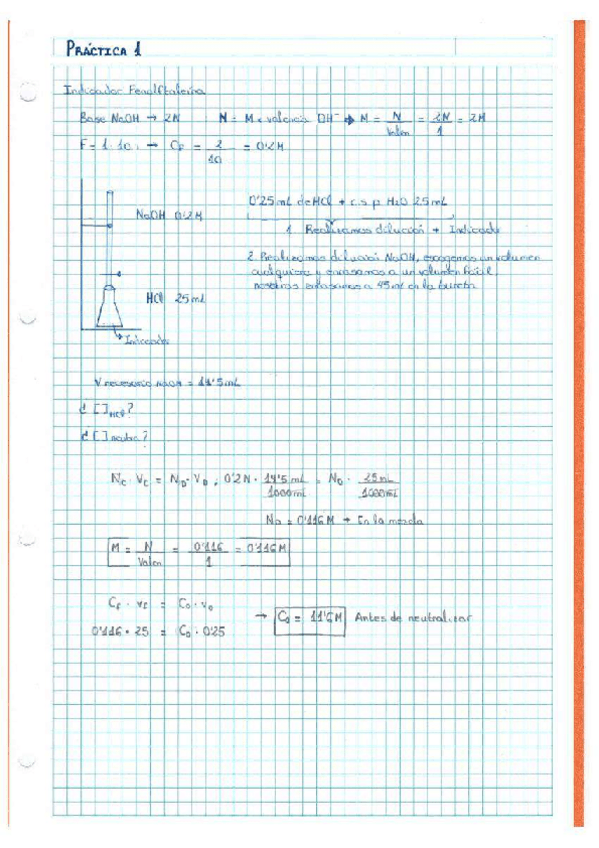 PRÁCTICA 1
Indicador Fenolftaleína
Base NaOH → 2N ; N = M × valencia OH⁻ → M = N/Valen = 2N/1 = 2M
F = 1:10 ; → CF = 2/10 = 0'2M
0'25mL de HCl + c.s.p H2O 25mL
NaOH 0'2M
1. Realizamos dilución + Indicador
2. Realizamos dilución NaOH, escogemos un volumen
cualquiera y enrasamos a un volumen fácil,
nosotros enrasamos a 45ml en la bureta.
HCl 25ml
Indicador
V necesario NaOH = 14'5mL
¿[ ]HCl?
¿[ ] neutra?
NC · VC = ND · VD ; 0'2N · 14'5ml/1000ml = ND · 25mL/1000ml
ND = 0'116M → En la mezcla
M = N/Valen = 0'116/1 = 0'116M
CF · VF = C0 · V0
→ C0 = 11'6M Antes de neutralizar
0'116 · 25 = C0 · 0'25